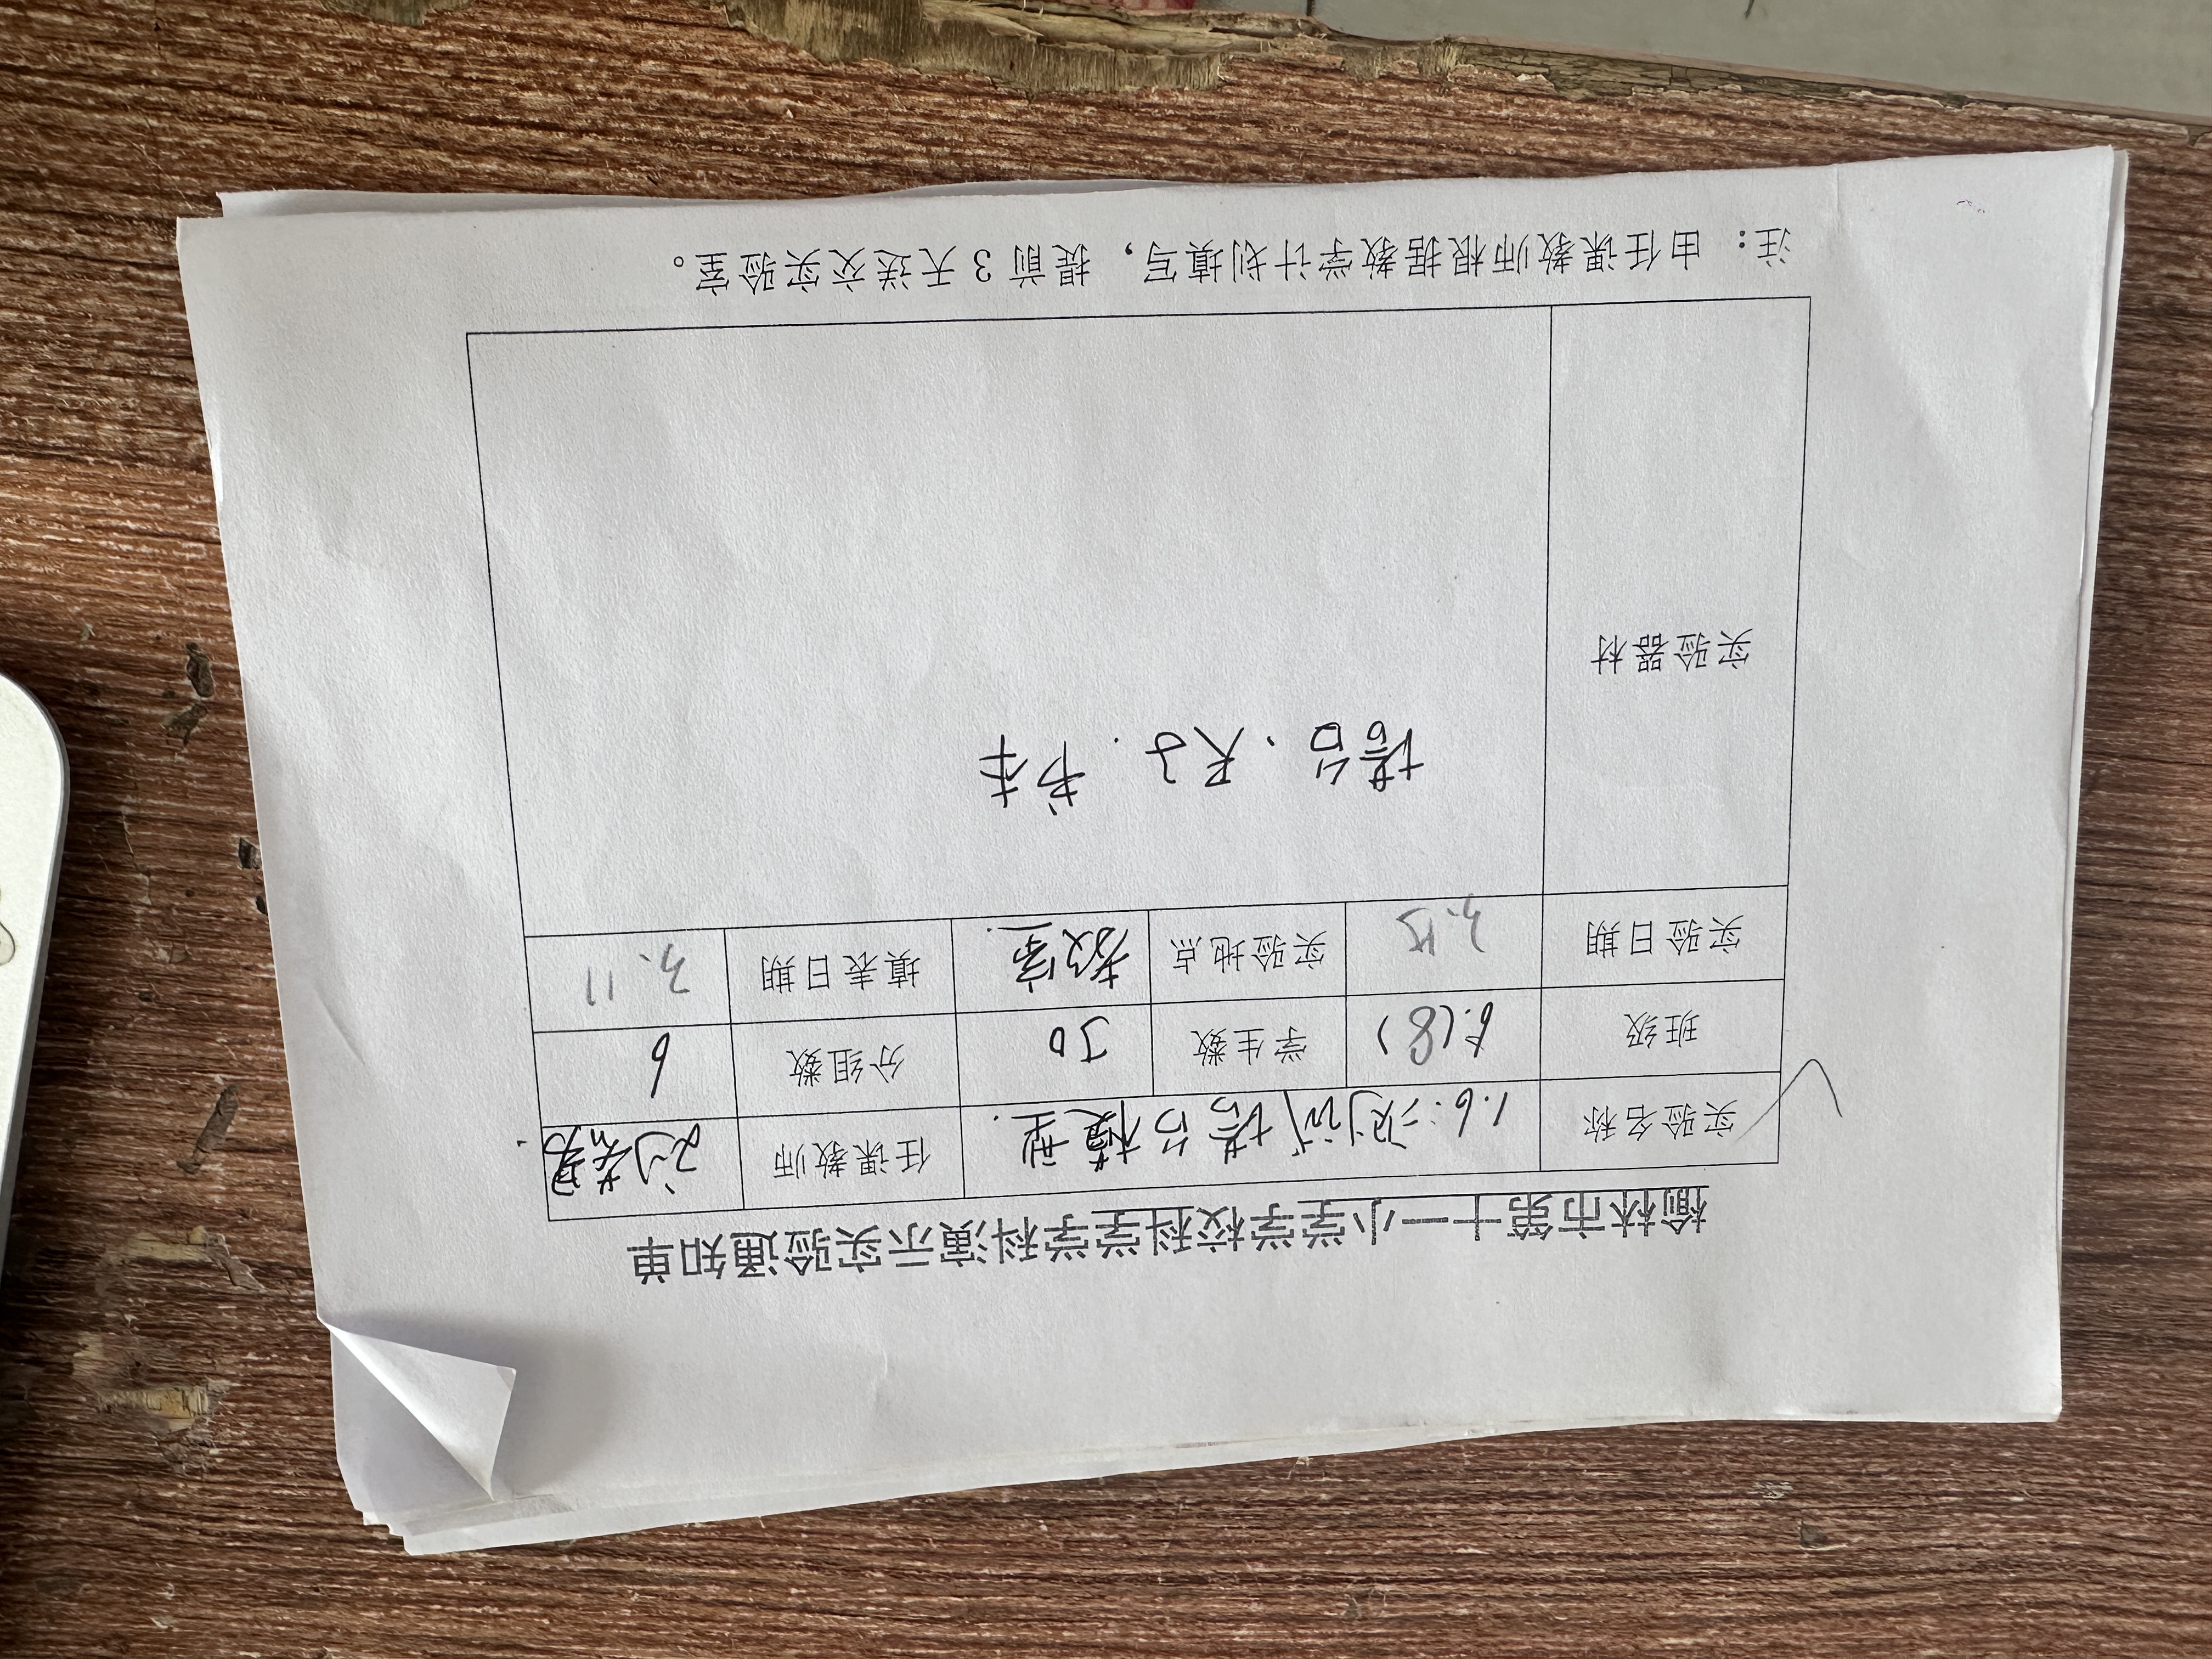 榆林市第十一小学学校科学学科演示实验通知单
实验名称 1.6:测试塔台模型. 任课教师 刘
班级 6.(8) 学生数 50 分组数 6
实验日期 3.15 实验地点 教室. 填表日期 3.11
实验器材 塔台.尺子.书本
注:由任课教师根据教学计划填写,提前3天送交实验室。